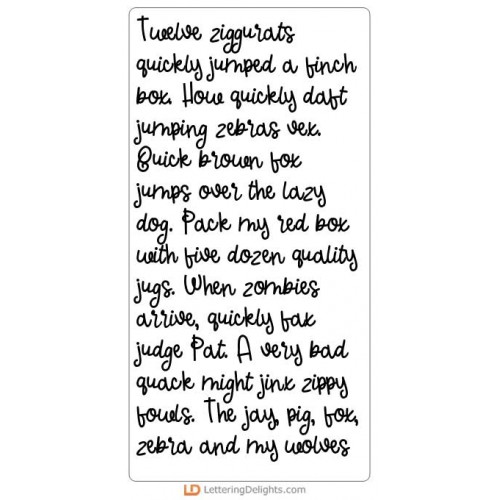 Twelve ziggurats
quickly jumped a finch
box. How quickly daft
jumping zebras vex.
Quick brown fox
jumps over the lazy
dog. Pack my red box
with five dozen quality
jugs. When zombies
arrive, quickly fax
judge Pat. A very bad
quack might jinx zippy
fowls. The jay, pig, fox,
zebra and my wolves
LD LetteringDelights.com